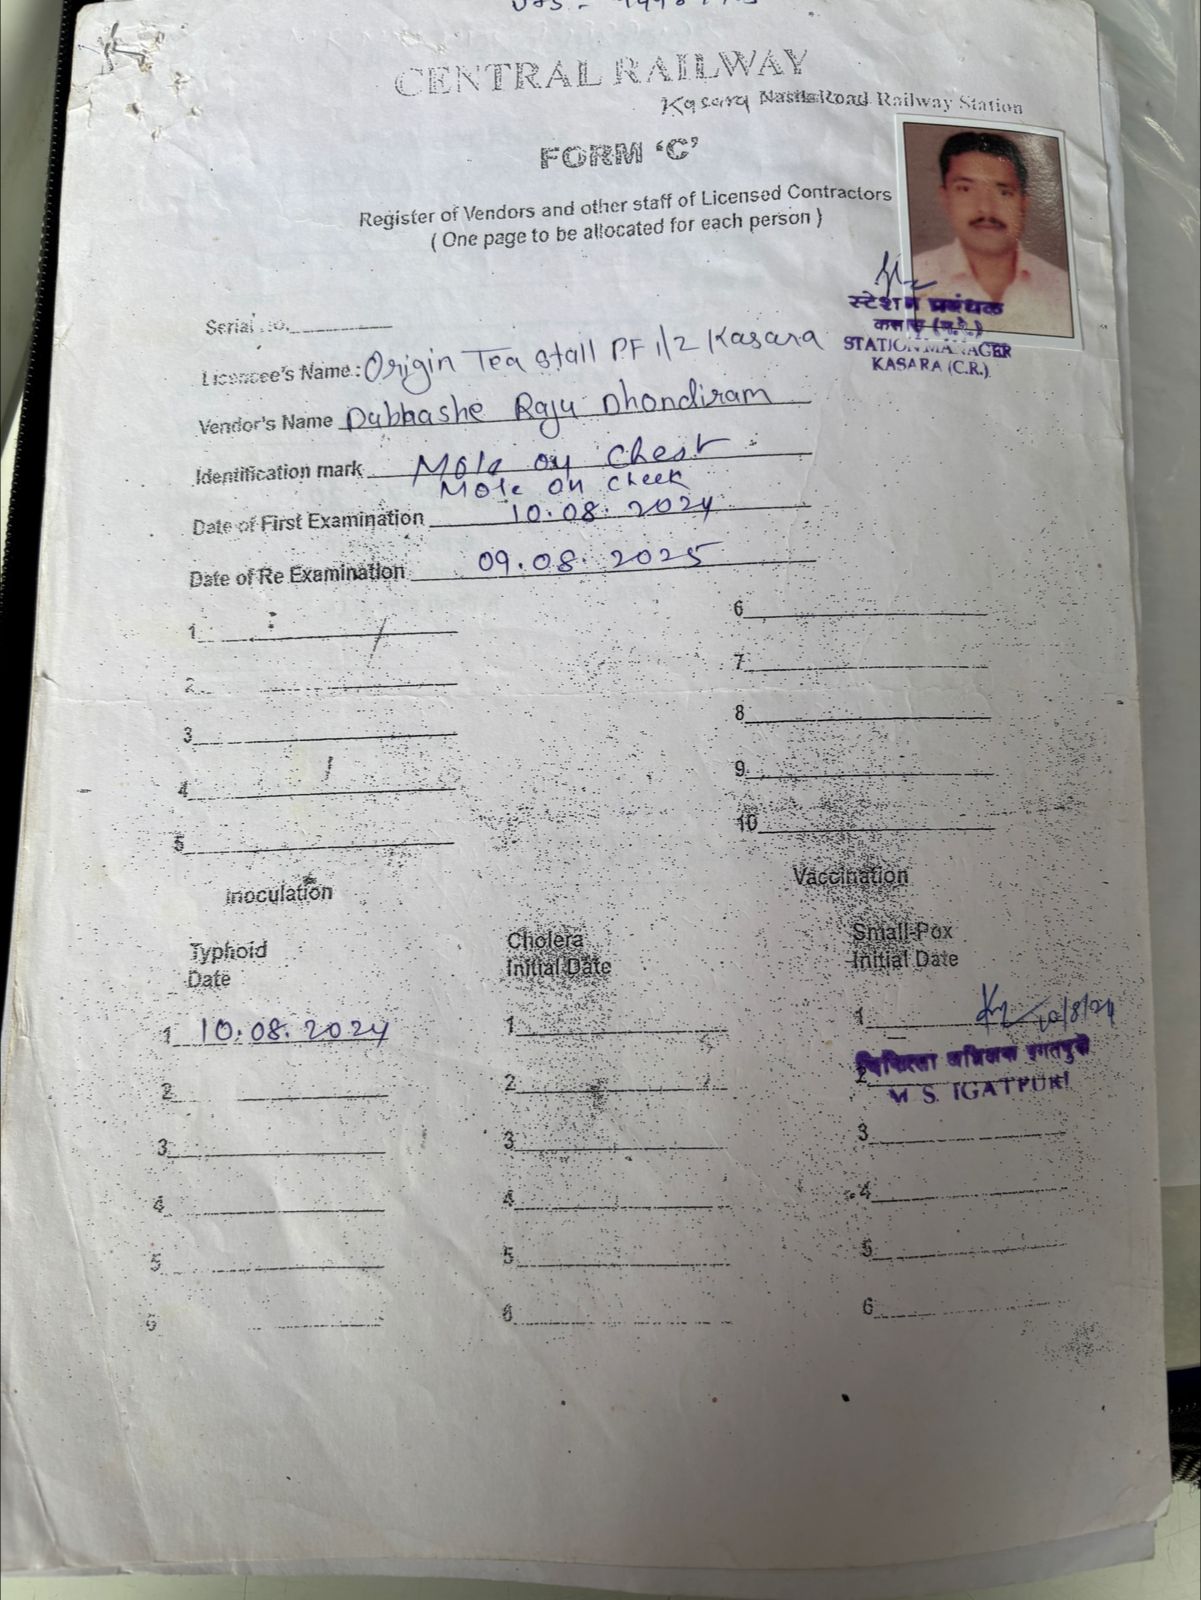 CENTRAL RAILWAY
Kasara Nasik Road Railway Station
FORM 'C'
Register of Vendors and other staff of Licensed Contractors
( One page to be allocated for each person )
स्टेशन प्रबंधक
कसारा (म.रे.)
STATION MANAGER
KASARA (C.R.)
Serial No.
Licencee's Name : Origin Tea stall PF 1/2 Kasara
Vendor's Name Dabhashe Raju Dhondiram
Identification mark Mole on Chest
Mole on cheek
Date of First Examination 10.08.2024
Date of Re Examination 09.08.2025
1 6
2 7
3 8
4 9
5 10
Inoculation Vaccination
Typhoid Cholera Small-Pox
Date Initial Date Initial Date
1 10.08.2024 1 1 10/8/24
चिकित्सा अधीक्षक इगतपुरी
2 2 2
M S. IGATPURI
3 3 3
4 4 4
5 5 5
6 6 6